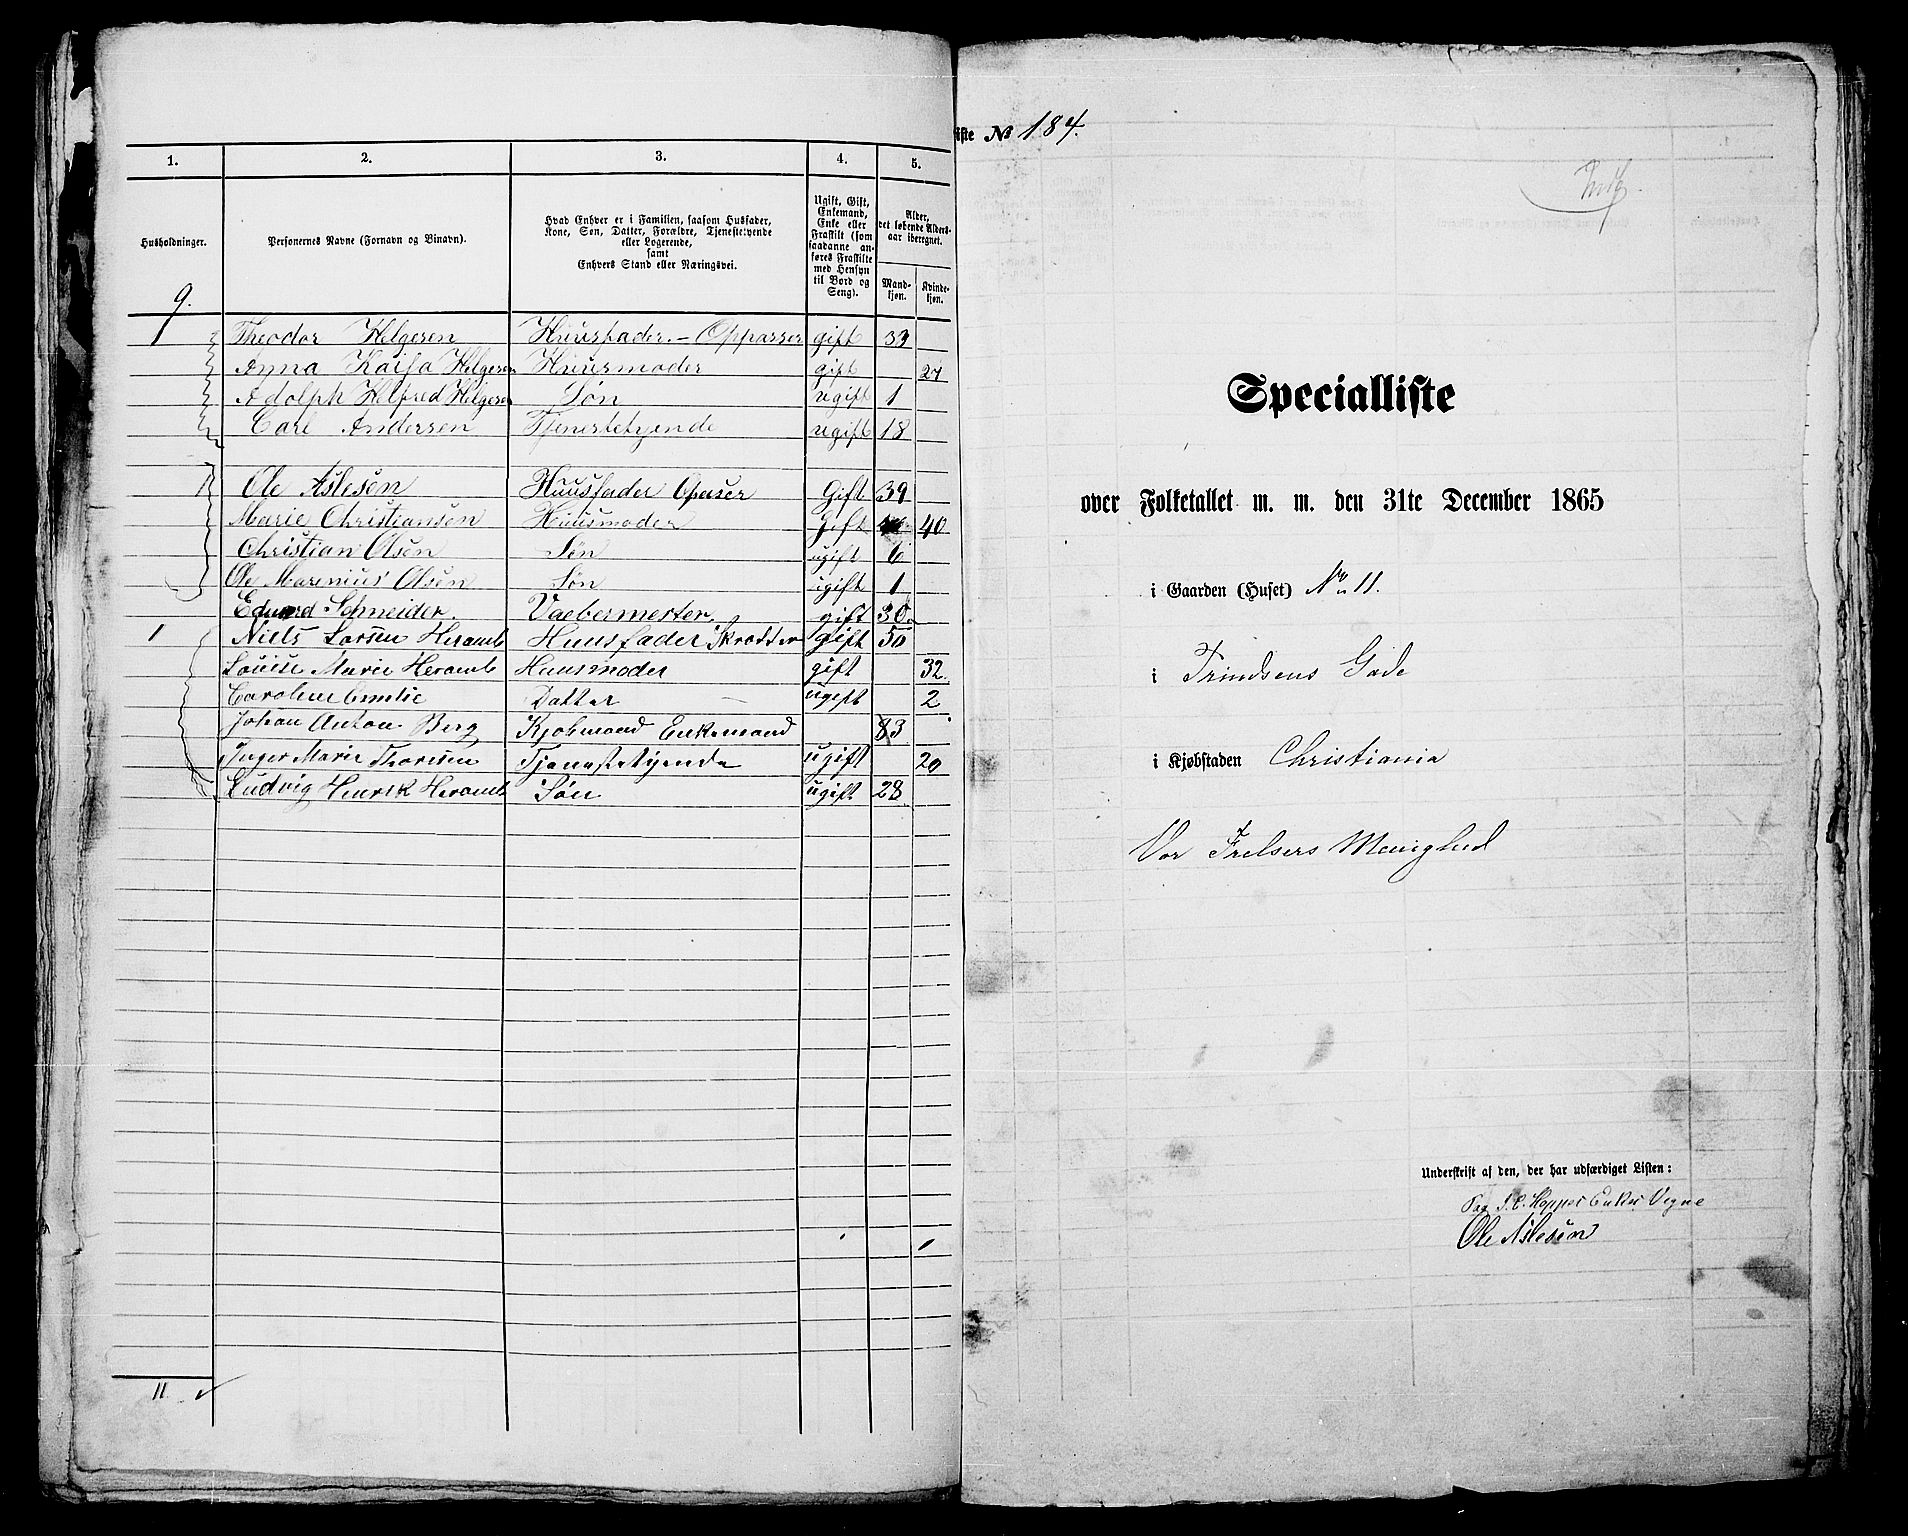 1. 2. 3. 4. 5.
Husholdninger.
Personernes Navne (Fornavn og Binavn).
Hvad Enhver er i Familien, saasom Husfader,
Kone, Søn, Datter, Forældre, Tjenestetyende
eller Logerende,
samt
Enhvers Stand eller Næringsvei.
Ugift, Gift,
Enkemand,
Enke eller
Fraskilt (som
saadanne an-
føres Fraskilte
med Hensyn
til Bord og
Seng).
Alder,
det løbende Alders-
aar iberegnet.
Mand-
kjøn.
Kvinde-
kjøn.
9.
1 Theodor Helgesen Huusfader.- Oppasser gift 33
Anna Kaisa Helgesen Huusmoder gift 27
Adolph Helfred Helgesen Søn ugift 1
Carl Andersen Tjenestetyende ugift 18
1 Ole Aslesen Huusfader Opaser Gift 39
Marie Christiansen Huusmoder Gift 40
Christian Olsen Søn ugift 6
Ole Marenius Olsen Søn ugift 1
Eduard Schneider Vaebermester gift 30
1 Niels Larsen Heramb Huusfader Skrædder gift 50
Louise Marie Heramb Huusmoder gift 32
Caroline Emilie Datter ugift 2
Johan Anton Berg Kjøbmand Enkemand 83
Inger Marie Thoresen Tjenestetyende ugift 20
Ludvig Henrik Heramb Søn ugift 28
11
iste № 184.
Specialliste
over Folketallet m. m. den 31te December 1865
i Gaarden (Huset) No 11.
i Trindsens Gade
i Kjøbstaden Christiania
Vor Frelsers Menighed
Underskrift af den, der har udfærdiget Listen:
Paa J. C. Hoppes Enkes Vegne
Ole Aslesen